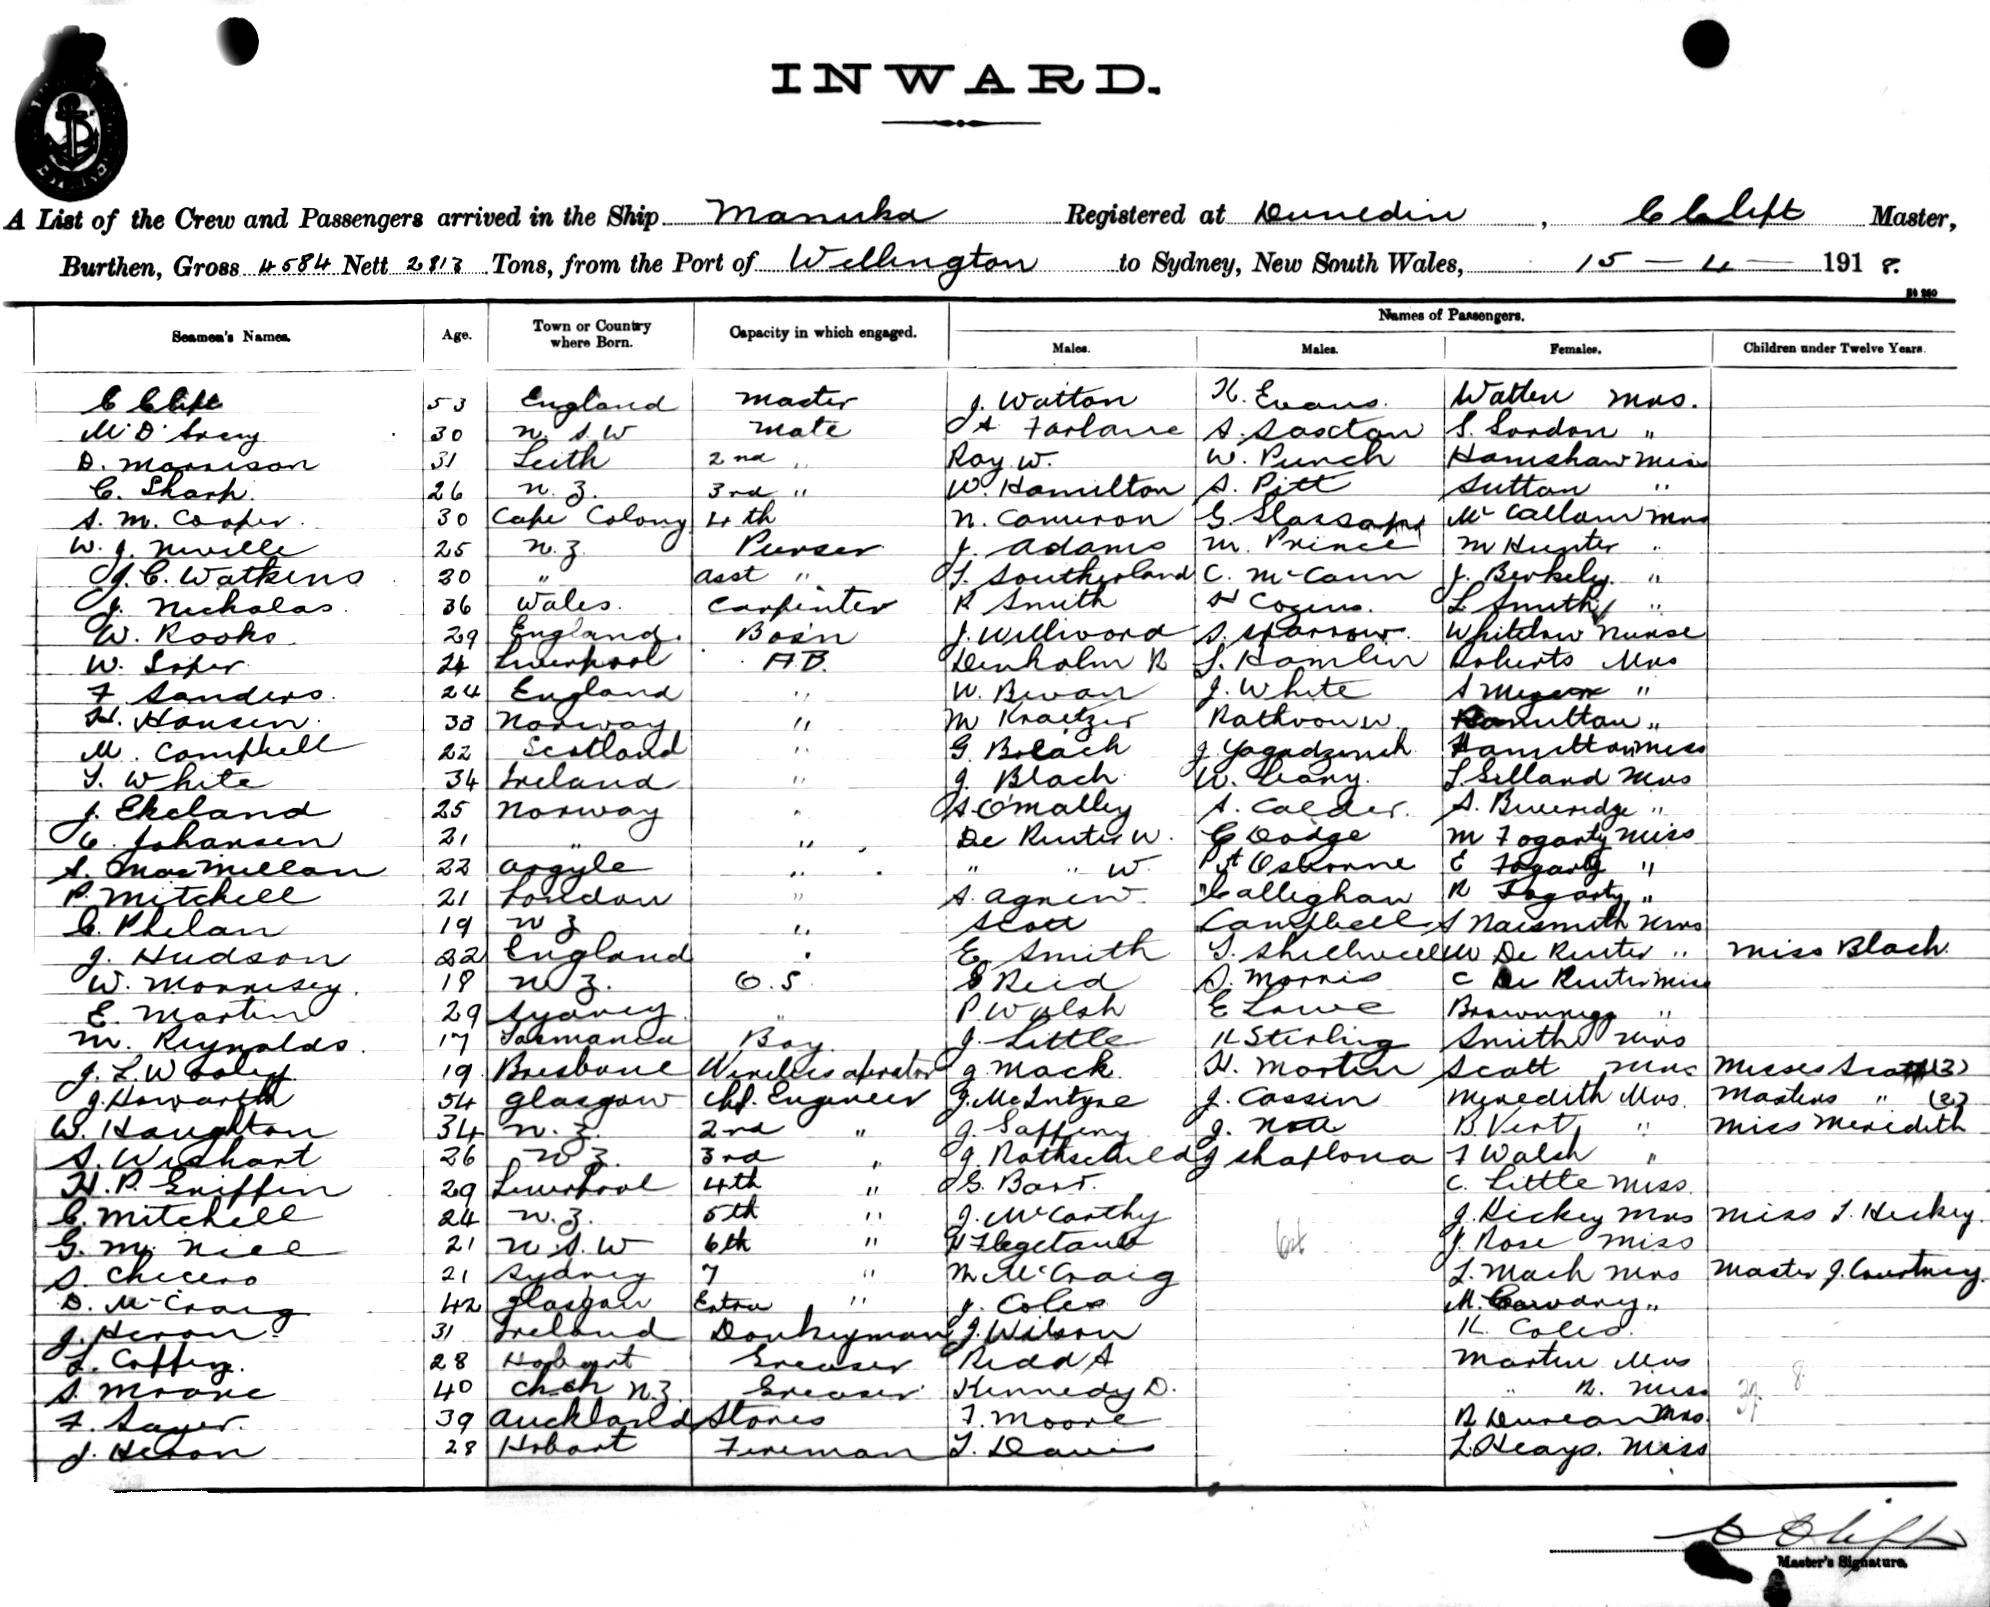 INWARD.
A List of the Crew and Passengers arrived in the Ship Manuka Registered at Dunedin, C Clift Master,
Burthen, Gross 4584 Nett 2813 Tons, from the Port of Wellington to Sydney, New South Wales, 15 - 4 - 1918.
Names of Passengers.
Seamen's Names. Age. Town or Country where Born. Capacity in which engaged. Males. Males. Females. Children under Twelve Years.
C Clift 53 England Master J. Watton H. Evans. Watten Mrs.
30 N. S. W Mate A Farlane A. Saxton S. "
D. Morrison 31 Leith 2nd " Roy W. W. Punch Hamshaw Miss
C. Sharp. 26 N. Z. 3rd " W. Hamilton A. Pitt Sutton "
A. M. Cooper. 30 Cape Colony 4th N. Cameron G. McCallum Mrs
W. J. Neville 25 N. Z. Purser J. Adams M. Prince M Hunter "
J. C. Watkins 20 " Asst " T. Southerland C. McCann J. Berkely "
J. Nicholas 36 Wales. Carpenter R Smith H Cozens. L Smith "
W. Rooks 29 England. Bos'n J. Williword S. Sparrow. Whitelaw Nurse
W. Soper 24 Liverpool A.B. Denholm R L. Hamlin Roberts Mrs
F Sanders. 24 England " W. Bevan J. White A "
H. Hansen. 33 Norway " M Kraetzer Rathvon W. Hamilton "
M. Campbell 22 Scotland " G. Bolach J Hamilton Miss
T. White 34 Ireland " J. Blach W. Leary. L. Gilland Mrs
J. Ekeland 25 Norway " A. O'Malley A. Calder. A. Beveridge "
C. Johansen 21 " " De Ruiter W. C Dodge M Fogarty Miss
A. MacMillan 22 Argyle " " " W. Pt Osborne E Fogarty "
P. Mitchell 21 London " A. Agnew. Callighan R Fogarty "
C. Phelan 19 N Z " Scott Campbell A Naismith Mrs
J. Hudson 22 England " E. Smith T. Shillwell W De Ruiter " Miss Blach
W. Morrisey. 18 N Z. O. S. S Reid D. Morris C De Ruiter Miss
E. Martin 29 Sydney " P Walsh E Lowe Brownrigg "
M. Reynolds. 17 Tasmania Boy J. Little R Sterling Smith Mrs
J. L Wooley 19 Brisbane Wireless operator J Mack. H. Martin Scott Mrs Misses Scott (3)
J. Howarth 54 Glasgow Chf. Engineer J. McIntyre J. Cassin Meredith Mrs. Masters " (2)
W. Haughton 34 N. Z. 2nd " J. Gaffeny J. Nott B. Vert " Miss Meredith
A. Wishart 26 N Z. 3rd " J. Rothschild J Shaflona F Walsh "
H. P. Griffin 29 Liverpool 4th " G. Barr. C. Little Miss.
C. Mitchell 24 N. Z. 5th " J. McCarthy J. Hickey Mrs Miss T. Hickey.
G. Mc Niel 21 N. S. W 6th " H Flegetaub J. Rose Miss
S. Chicero 21 Sydney 7 " M. McCraig L. Mach Mrs Master J. Courtney.
D. McCraig 42 Glasgow Extra " J. Coles M. "
J. Heron 31 Ireland Donkeyman J. Wilson K. Coles.
L. Coffey. 28 Hobart Greaser Redd A Martin Mrs
S. Moore 40 Chch N.Z. Greaser Kennedy D. " R. Miss
F. Sayer. 39 Auckland Stores F. Moore R Duncan Mrs.
J. Heron 28 Hobart Fireman T. Davis L. Heays. Miss
C Clift
Master's Signature.